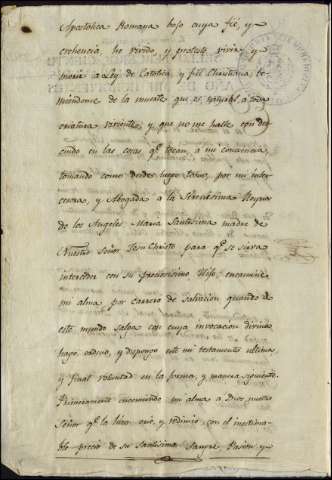 Apostolica Romana bajo cuya fée, y
crehencia, he vivido, y protesto vivir, y
morir a Ley de Catolica y fiel Christiana, te-
miendome de la muerte que es natural a toda
criatura viviente, y que no me halle con des-
cuido en las cosas qe. tocan á mi conciencia,
tomando como desde luego tomo, por mi inter-
cesora, y Abogada á la Serenisima Reyna
de los Angeles Maria Santisima madre de
Nuestro Señor Jesu Christo para qe. se sirva
interceder con su preciosisimo Hijo, encamine
mi alma por carrera de Salvacion quando de
este mundo salga con cuya invocacion divina
hago, ordeno, y dispongo este mi testamento ultima
y final voluntad en la forma, y manera siguiente.
Primeramente encomiendo mi alma a Dios nuestro
Señor qe. la hizo, crió, y redimió con el inestima-
ble precio de su Santisima Sangre Pasion y